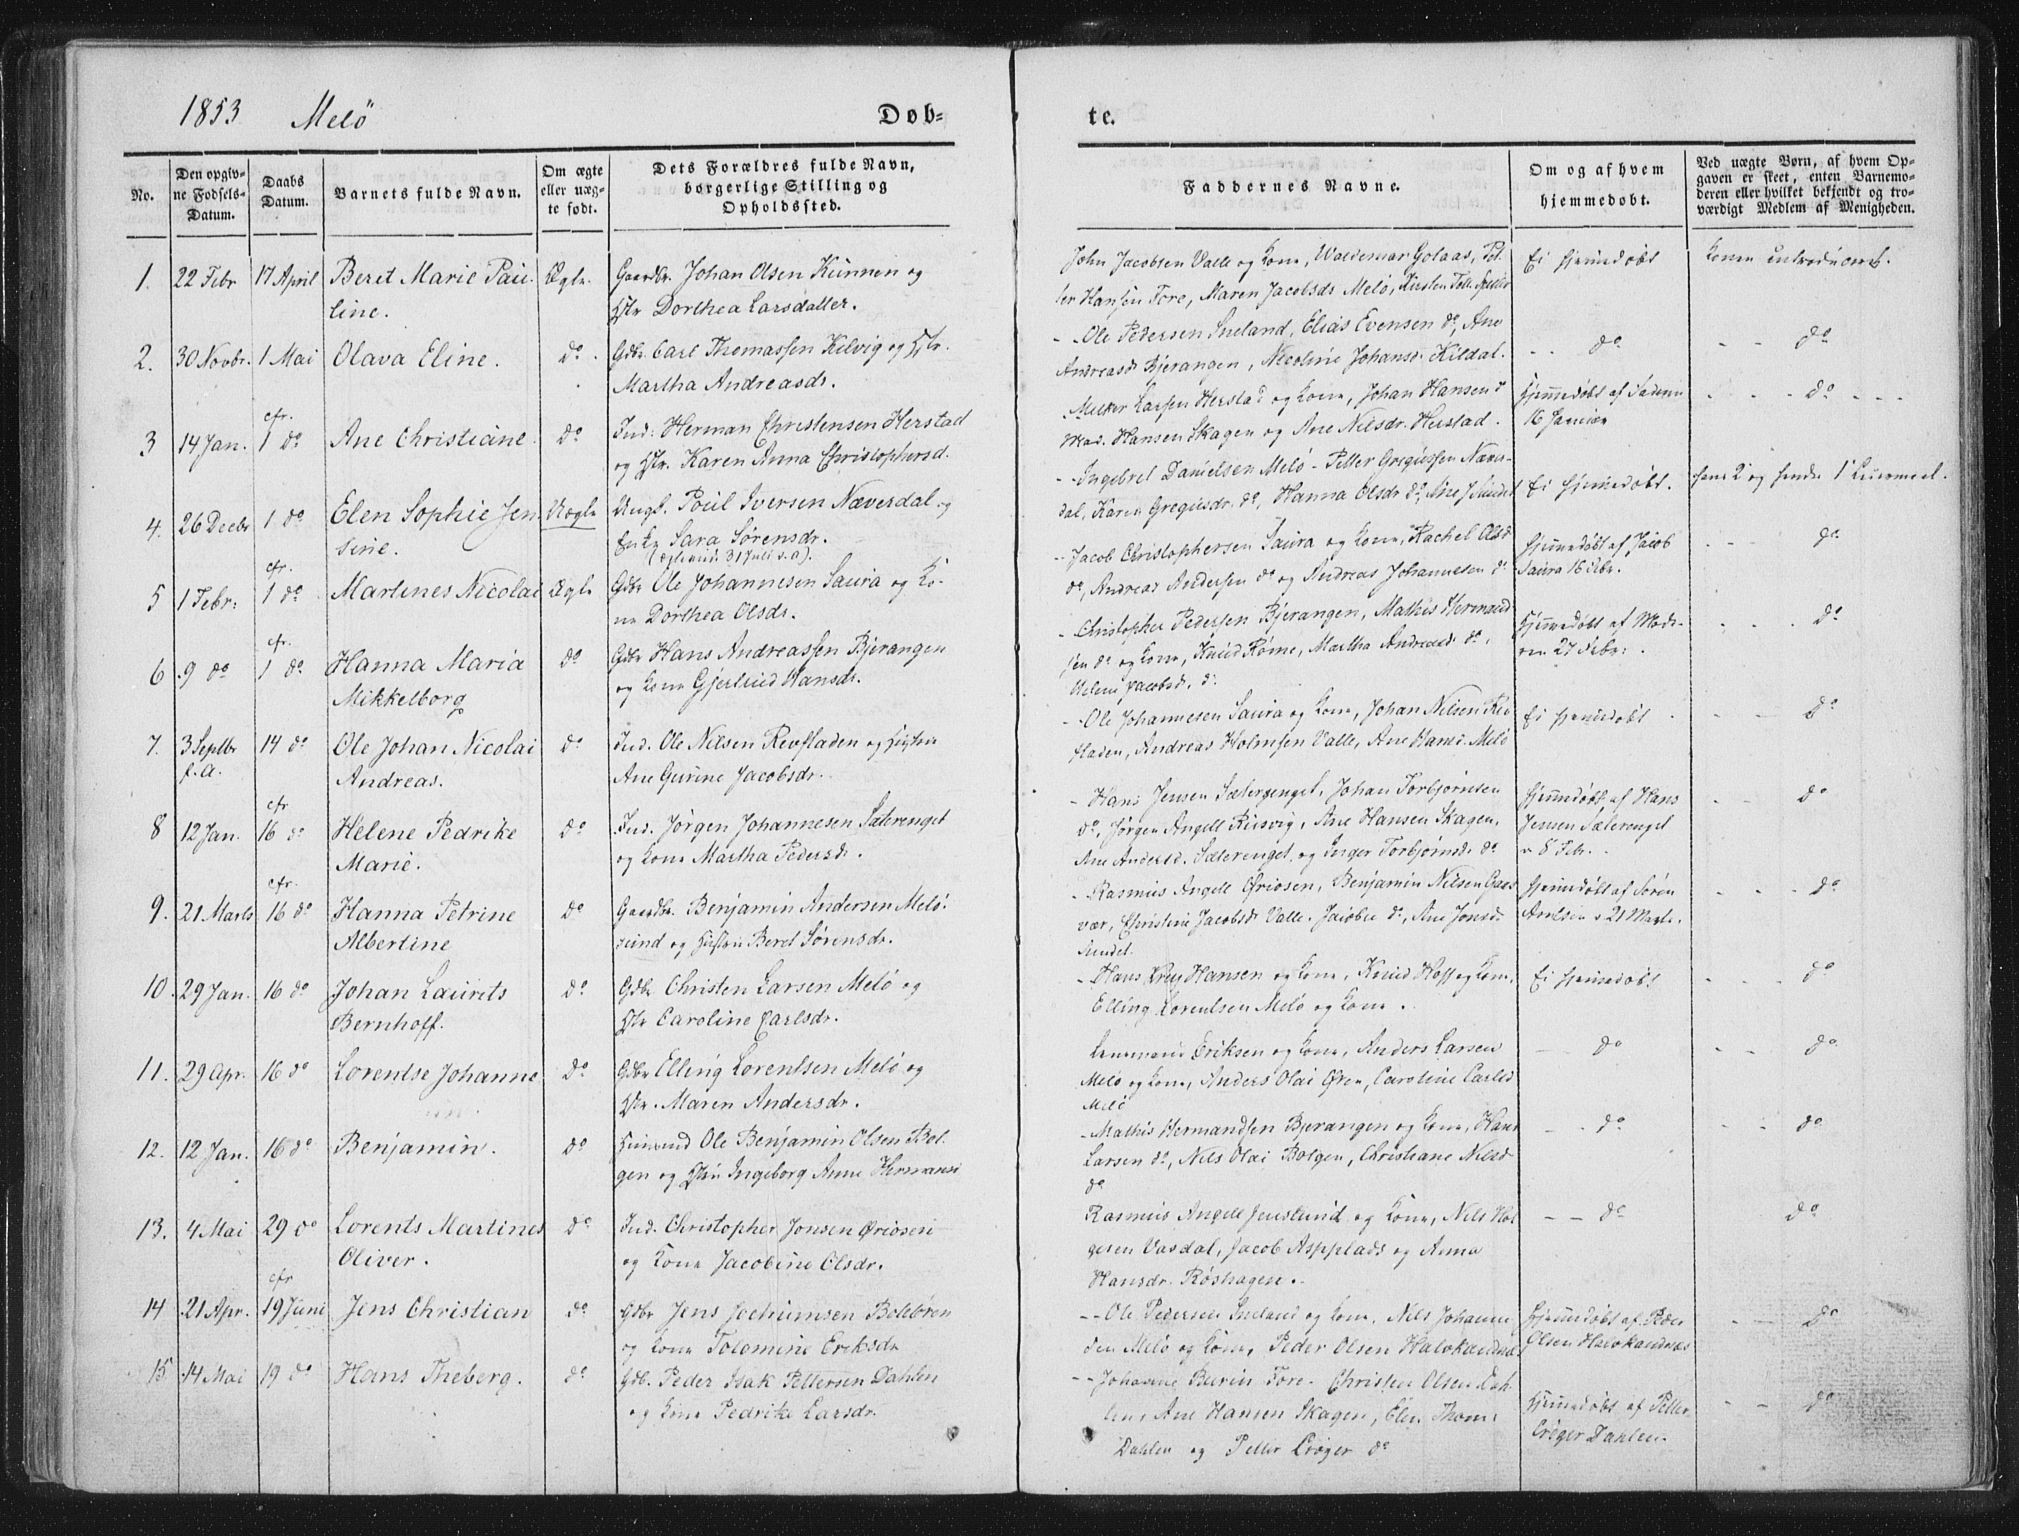 1853 Melö
Døb-
te.
No.
Den opgiv-
ne Fødsels-
Datum.
Daabs
Datum.
Barnets fulde Navn.
Om ægte
eller uæg-
te født.
Dets Forældres fulde Navn,
borgerlige Stilling og
Opholdssted.
Faddernes Navne.
Om og af hvem
hjemmedøbt.
Ved uægte Børn, af hvem Op-
gaven er skeet, enten Barnemo-
deren eller hvilket bekjendt og tro-
værdigt Medlem af Menigheden.
1. 22 Febr 17 April Beret Marie Pau-
line.
Ægte. Gaardbr. Johan Olsen Kunnen og
Htr Dorthea Larsdatter.
John Jacobsen Valle og Kone, Waldemar Golaas, Pet-
ter Hansen Fore, Maren Jacobsdr Melö, Kirsten
Ei hjemmedøbt
Konen introduceret.
2. 30 Novbr. 1 Mai Olava Eline. do
Gdbr. Carl Thomassen Kilvig og Htr.
Martha Andreasdr.
- Ole Pedersen Sneland, Elias Evensen do, Ane
Andreasdr Bjerangen, Nicoline Johansdr Kildal.
- - do
- - do
3 14 Jan. cfr. 1 do Ane Christiane. do
Ind: Herman Christensen Herstad
og Htr. Karen Anna Christophersd.
- Melker Larsen Herstad og Kone, Johan Hansen do
Mad. Hansen Skagen og Ane Nilsdr. Herstad.
Hjemmedøbt af
16 Januar
- - do - - -
4. 26 Decbr 1 do Elen Sophie Jen-
sine.
Uægte Ungk. Poul Iversen Næverdal og
Enke Sara Sørensdr.
- Ingebret Danielsen Melö - Petter Gregusen Næver-
dal, Karen Gregusdr. do, Hanna Olsdr do, Ane J Sundet
Ei hjemmedøbt.
hans 2 og hendes 1 Leiermaal.
5 1 Febr: cfr. 1 do Martines Nicolai Ægte
Gdbr Ole Johannesen Saura og Ko-
ne Dorthea Olsdr.
- Jacob Christophersen Saura og Kone, Rachel Olsd
do, Andreas Andersen do og Andreas Johannesen do
Hjemmedøbt af Jacob
Saura 16 Febr.
- - do
6 9 do cfr. 1 do Hanna Maria
Mikkelborg
do Gdbr Hans Andreassen Bjerangen
og Kone Gjertrud Hansdr.
- Christopher Pedersen Bjerangen, Mathis Hermand-
sen do og Kone, Knud Rőme, Martha Andreasd. do,
Helene Jacobsd. do
Hjemmedøbt af Mode-
ren 27 Febr.
- - do
7. 3 Septbr
f. a.
14 do Ole Johan Nicolai
Andreas.
do Ind. Ole Nilsen Revfladen og Hustru
Ane Gurine Jacobsdr.
- Ole Johannesen Saura og Kone, Johan Nilsen Rev-
fladen, Andreas Holmsen Valle, Ane Hansd. Melö
Ei hjemmedøbt
- - do
8 12 Jan. cfr 16 do Helene Pedrike
Marie.
do Ind. Jørgen Johannesen Sæterenget
og Kone Martha Pedersdr.
- Hans Jensen Sæterenget, Johan Torbjørnsen
do, Jørgen Angell Rusvig, Ane Hansen Skagen,
Ane Andersd. Sæterenget og Inger Torbjørnsd. do
Hjemmedøbt af Hans
Jensen Sæterenget
8 Febr.
- - do
9. 21 Marts cfr. 16 do Hanna Petrine
Albertine
do Gaardbr. Benjamin Andersen Melö-
sund og Hustru Beret Sørensdr.
- Rasmus Angell Øriosen, Benjamin Nilsen Gaas-
vær, Christine Jacobsdr Valle. Jacobea do, Ane Jonsd.
Sundet
Hjemmedøbt af Søren
21 Marts.
- - - do
10. 29 Jan. 16 do Johan Laurits
Bernhoff.
do Gdbr Christen Larsen Melö og
Htr Caroline Carlsdr.
- Hans Krey Hansen og Kone, Knud Hoff og Kone,
Elling Lorentsen Melö og Kone.
Ei hjemmedøbt
- - - do
11. 29 Apr. 16 do Lorentse Johanne do
Gdbr Elling Lorentsen Melö og
Htr. Maren Andersdr.
Lensmand Eriksen og Kone, Anders Larsen
Melö og Kone, Anders Olai Øren, Caroline Carlsd
Melö
- - do
- - do
12. 12 Jan. 16 do Benjamin. do
Huusmd Ole Benjamin Olsen Bol-
gen og Htr Ingeborg Anne Hermansd
- Mathis Hermandsen Bjerangen og Kone, Hans
Larsen do, Nils Olai Bolgen, Christiane Nilsd
do
- - do
- - do
13. 4 Mai 29 do Lorents Martines
Oliver.
do Ind. Christopher Jonsen Øriosen
og Kone Jacobine Olsdr.
Rasmus Angell Jenslund og Kone, Nils Hol-
gesen Vasdal, Jacob Aspplads og Anna
Hansdr. Røshagen.
- - do
do
14 21 Apr. cfr 19 Juni Jens Christian do
Gdbr Jens Jochumsen Bolsøren
og Kone Tolomine Eriksdr
- Ole Pedersen Sneland og Kone, Nils Johanne-
sen Melö og Kone, Peder Olsen Halokandnæs
Hjemmedøbt af Peder
Olsen Halokandnæs
- - do
15 14 Mai 19 do Hans Theberg. do
Gdb. Peder Isak Pettersen Dahlen
og Kone Pedrike Larsdr.
- Johanne Burin Fore - Christen Olsen Dah-
len, Ane Hansen Skagen, Elen Thoms
Dahlen og Petter Crøger do
Hjemmedøbt af Petter
Crøger Dahlen.
- - do